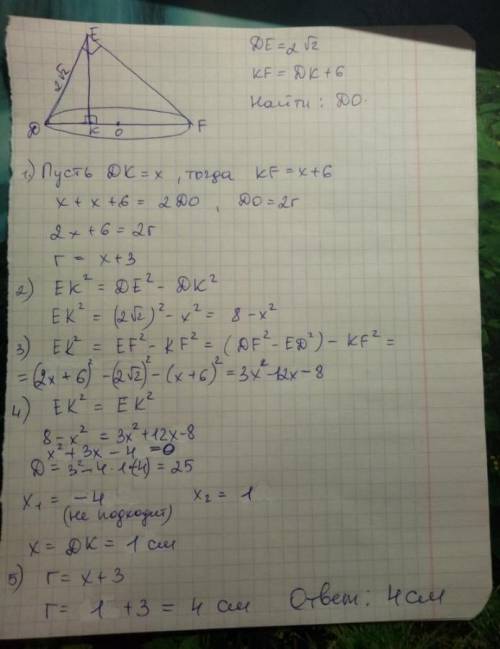 E
2√2
D K O F
DE = 2√2
KF = DK + 6
Найти: DO.
1) Пусть DK = x, тогда KF = x + 6
x + x + 6 = 2DO, DO = 2r
2x + 6 = 2r
r = x + 3
2) EK² = DE² - DK²
EK² = (2√2)² - x² = 8 - x²
3) EK² = EF² - KF² = (DF² - ED²) - KF² =
= (2x + 6)² - (2√2)² - (x + 6)² = 3x² - 12x - 8
4) EK² = EK²
8 - x² = 3x² + 12x - 8
x² + 3x - 4 = 0
D = 3² - 4·1·(-4) = 25
x₁ = -4 x₂ = 1
(не подходит)
x = DK = 1 см
5) r = x + 3
r = 1 + 3 = 4 см Ответ: 4 см